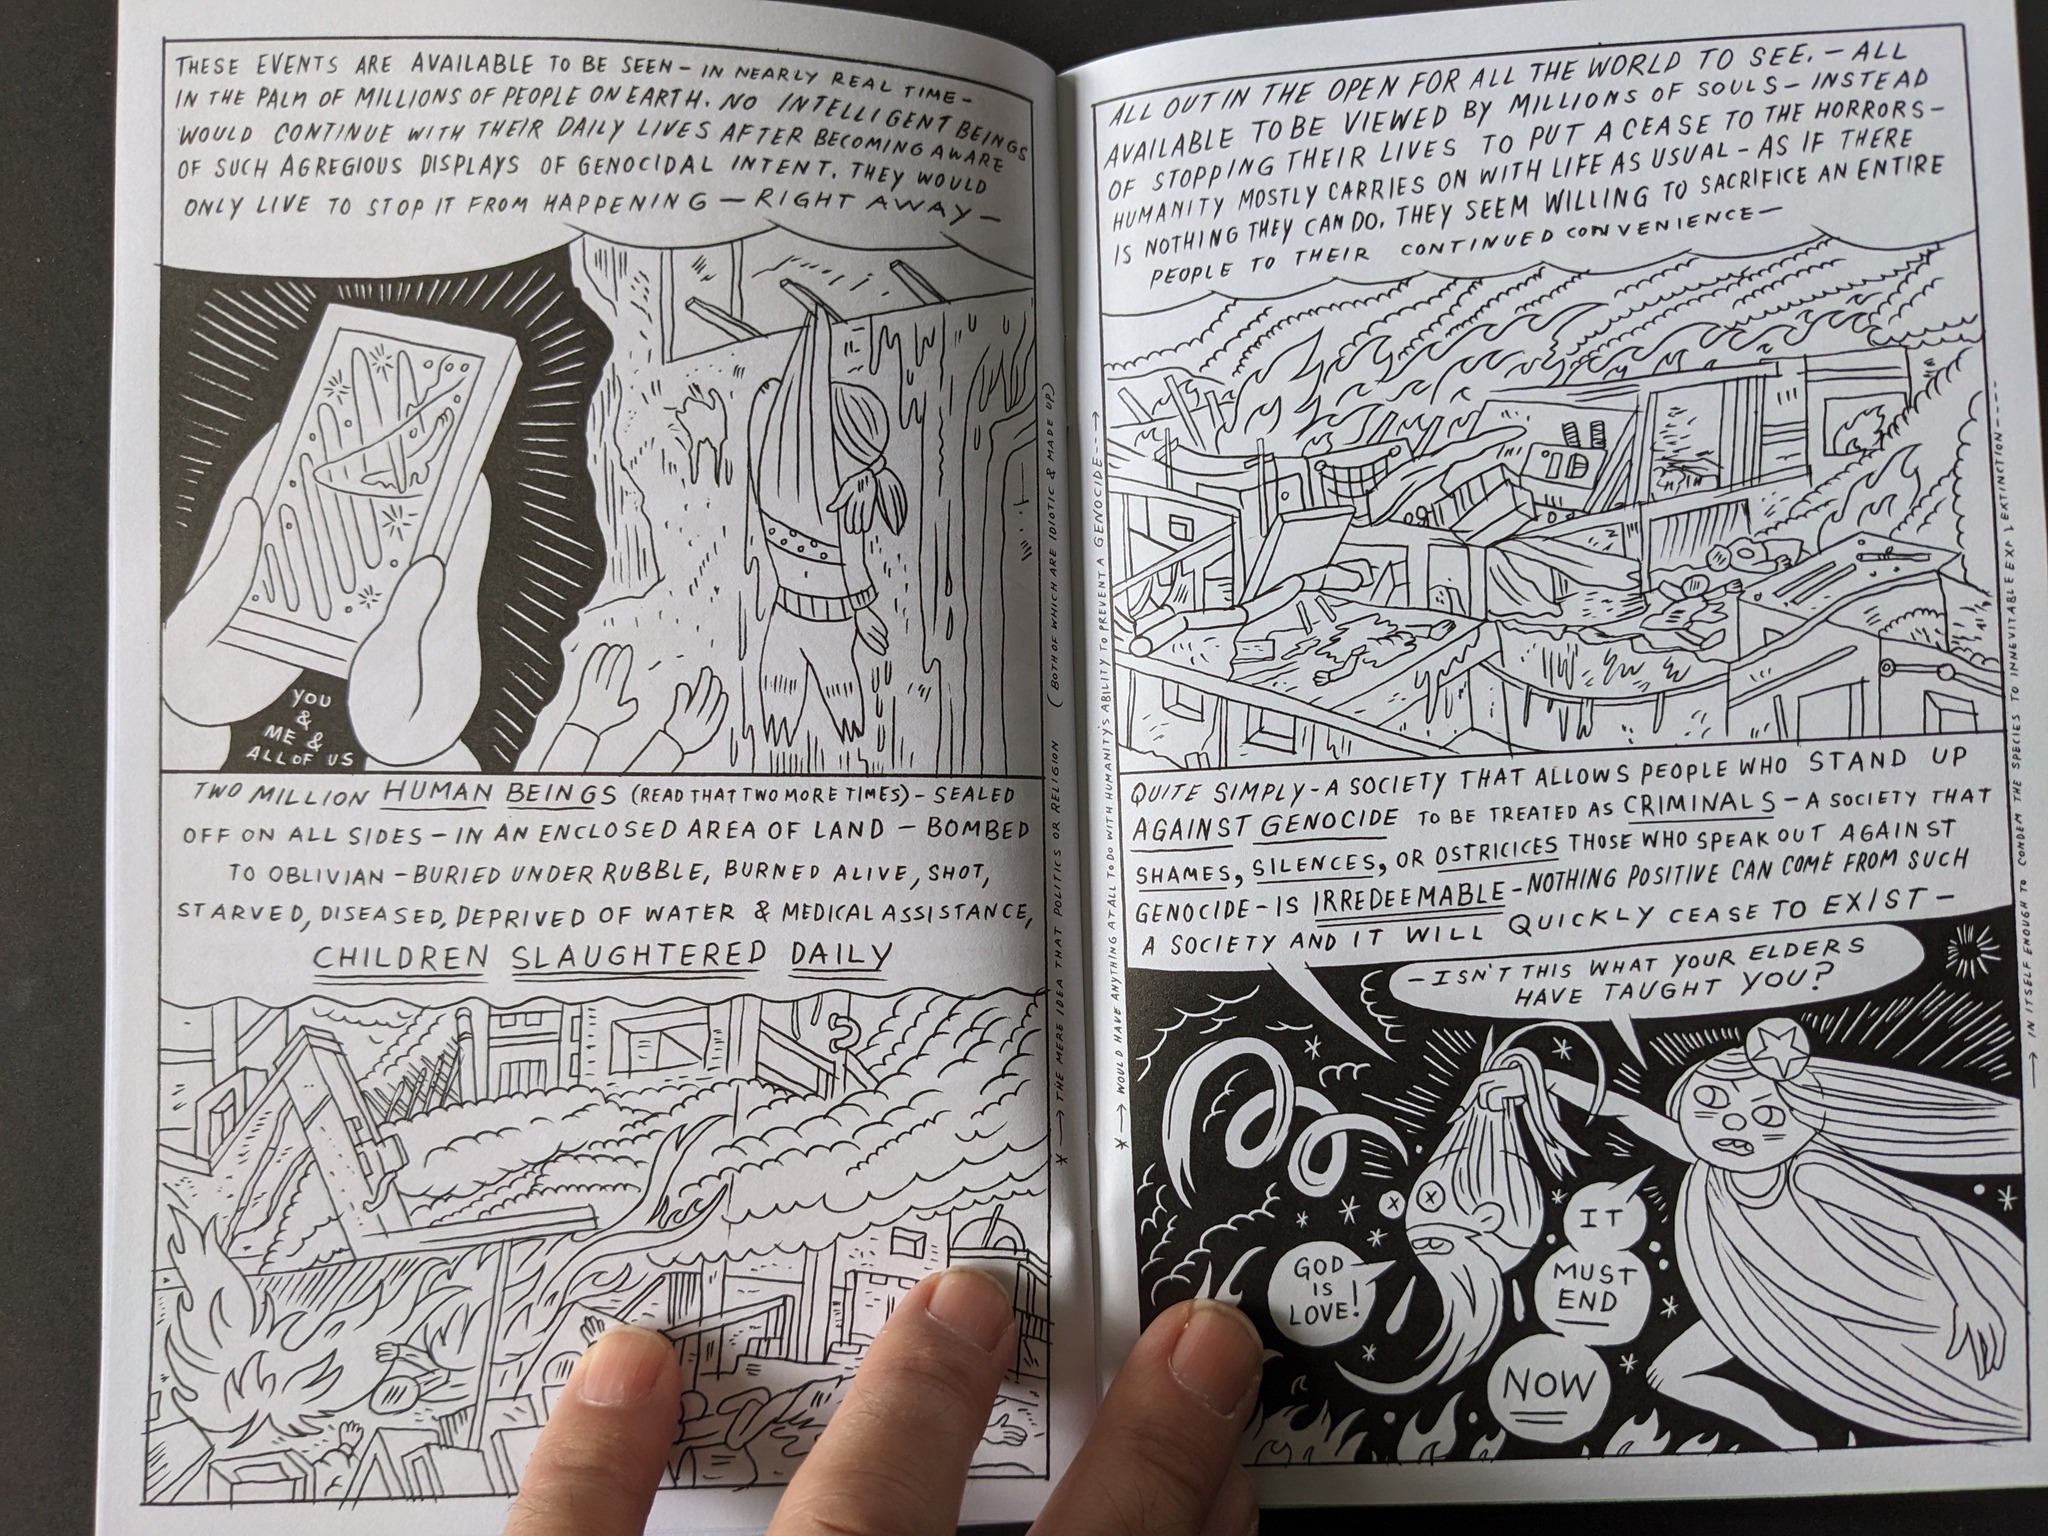 THESE EVENTS ARE AVAILABLE TO BE SEEN – IN NEARLY REAL TIME –
IN THE PALM OF MILLIONS OF PEOPLE ON EARTH. NO INTELLIGENT BEINGS
WOULD CONTINUE WITH THEIR DAILY LIVES AFTER BECOMING AWARE
OF SUCH AGREGIOUS DISPLAYS OF GENOCIDAL INTENT. THEY WOULD
ONLY LIVE TO STOP IT FROM HAPPENING – RIGHT AWAY –
YOU
&
ME &
ALL OF US
TWO MILLION HUMAN BEINGS (READ THAT TWO MORE TIMES) – SEALED
OFF ON ALL SIDES – IN AN ENCLOSED AREA OF LAND – BOMBED
TO OBLIVIAN – BURIED UNDER RUBBLE, BURNED ALIVE, SHOT,
STARVED, DISEASED, DEPRIVED OF WATER & MEDICAL ASSISTANCE,
CHILDREN SLAUGHTERED DAILY
* → THE MERE IDEA THAT POLITICS OR RELIGION (BOTH OF WHICH ARE IDIOTIC & MADE UP)
* → WOULD HAVE ANYTHING AT ALL TO DO WITH HUMANITY'S ABILITY TO PREVENT A GENOCIDE - - - →
ALL OUT IN THE OPEN FOR ALL THE WORLD TO SEE. – ALL
AVAILABLE TO BE VIEWED BY MILLIONS OF SOULS – INSTEAD
OF STOPPING THEIR LIVES TO PUT A CEASE TO THE HORRORS –
HUMANITY MOSTLY CARRIES ON WITH LIFE AS USUAL – AS IF THERE
IS NOTHING THEY CAN DO. THEY SEEM WILLING TO SACRIFICE AN ENTIRE
PEOPLE TO THEIR CONTINUED CONVENIENCE –
QUITE SIMPLY – A SOCIETY THAT ALLOWS PEOPLE WHO STAND UP
AGAINST GENOCIDE TO BE TREATED AS CRIMINALS – A SOCIETY THAT
SHAMES, SILENCES, OR OSTRICICES THOSE WHO SPEAK OUT AGAINST
GENOCIDE – IS IRREDEEMABLE – NOTHING POSITIVE CAN COME FROM SUCH
A SOCIETY AND IT WILL QUICKLY CEASE TO EXIST –
– ISN'T THIS WHAT YOUR ELDERS
HAVE TAUGHT YOU?
GOD
IS
LOVE!
IT
MUST
END
NOW
→ IN ITSELF ENOUGH TO CONDEM THE SPECIES TO INNEVITABLE EXTINCTION - - - -